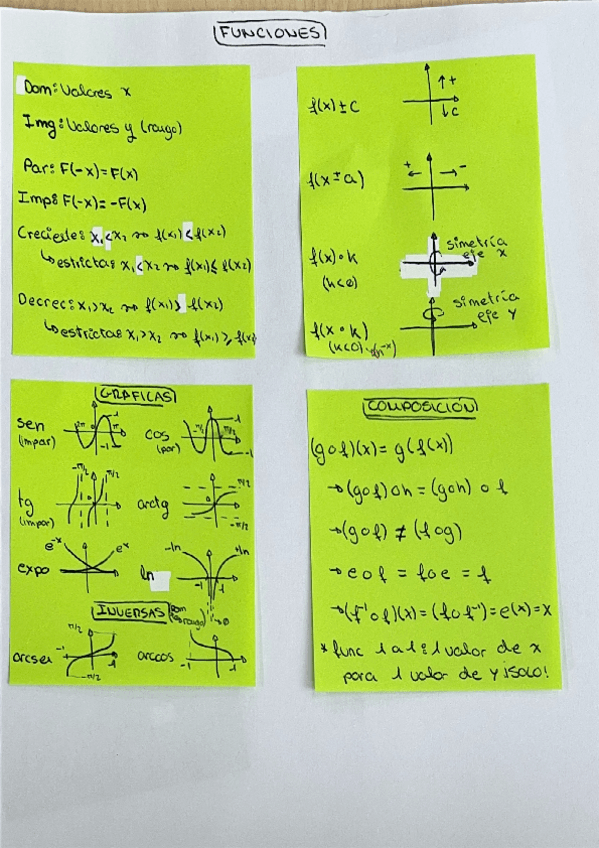 FUNCIONES
Dom: Valores x
Img: Valores y (rango)
Par: F(-x)=F(x)
Imp: F(-x)=-F(x)
Creciente: x₁<x₂ ⇝ f(x₁)<f(x₂)
↳estricta: x₁<x₂ ⇝ f(x₁)≤f(x₂)
Decrec: x₁>x₂ ⇝ f(x₁)> f(x₂)
↳estricta: x₁>x₂ ⇝ f(x₁)≥f(x₂)
f(x)±c
↑+
↓c
f(x±a)
+ ← → -
f(x)∘k
(k<0)
simetría
eje x
f(x∘k)
(k<0)
simetría
eje y
GRÁFICAS
sen
(impar)
cos
(par)
tg
(impar)
-π/2
π/2
arctg
π/2
-π/2
expo
e⁻ˣ
eˣ
ln
-ln
+ln
-1
1
INVERSAS
arcsen
π/2
-1
1
-π/2
arccos
-1
1
COMPOSICIÓN
(g∘f)(x)=g(f(x))
→(g∘f)∘h=(g∘h)∘f
→(g∘f)≠(f∘g)
→e∘f=f∘e=f
→(f⁻¹∘f)(x)=(f∘f⁻¹)=e(x)=x
*func 1 a 1: 1 valor de x
para 1 valor de y ¡SOLO!